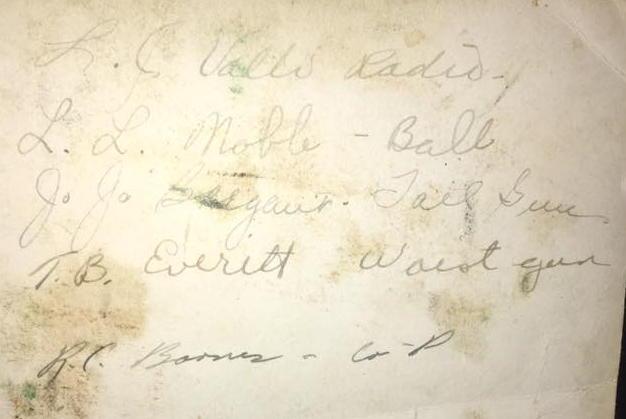 L. J. Valli Radio.
L. L. Moble - Ball
Jo Jo Tail Gun
T. B. Everitt Waist gun
R.C. - Co-P